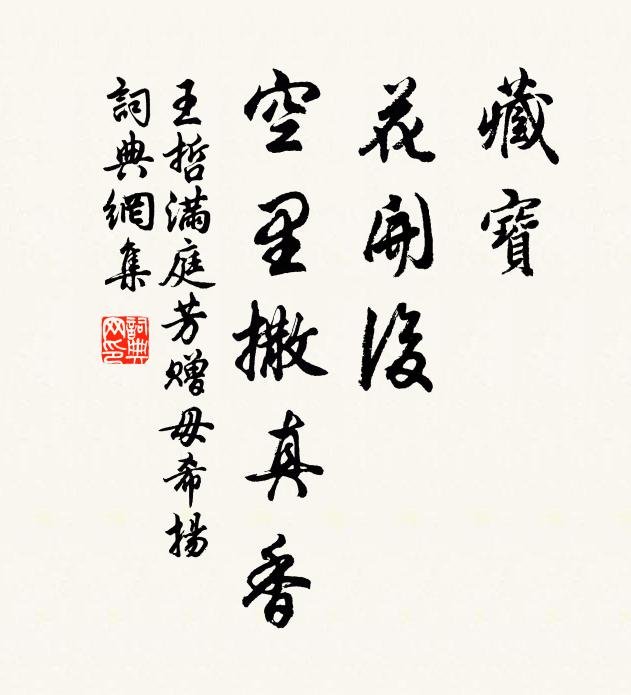 藏寶
花開後
空里撒真香
王哲滿庭芳赠毋希揚
詞典網集
詞典网印